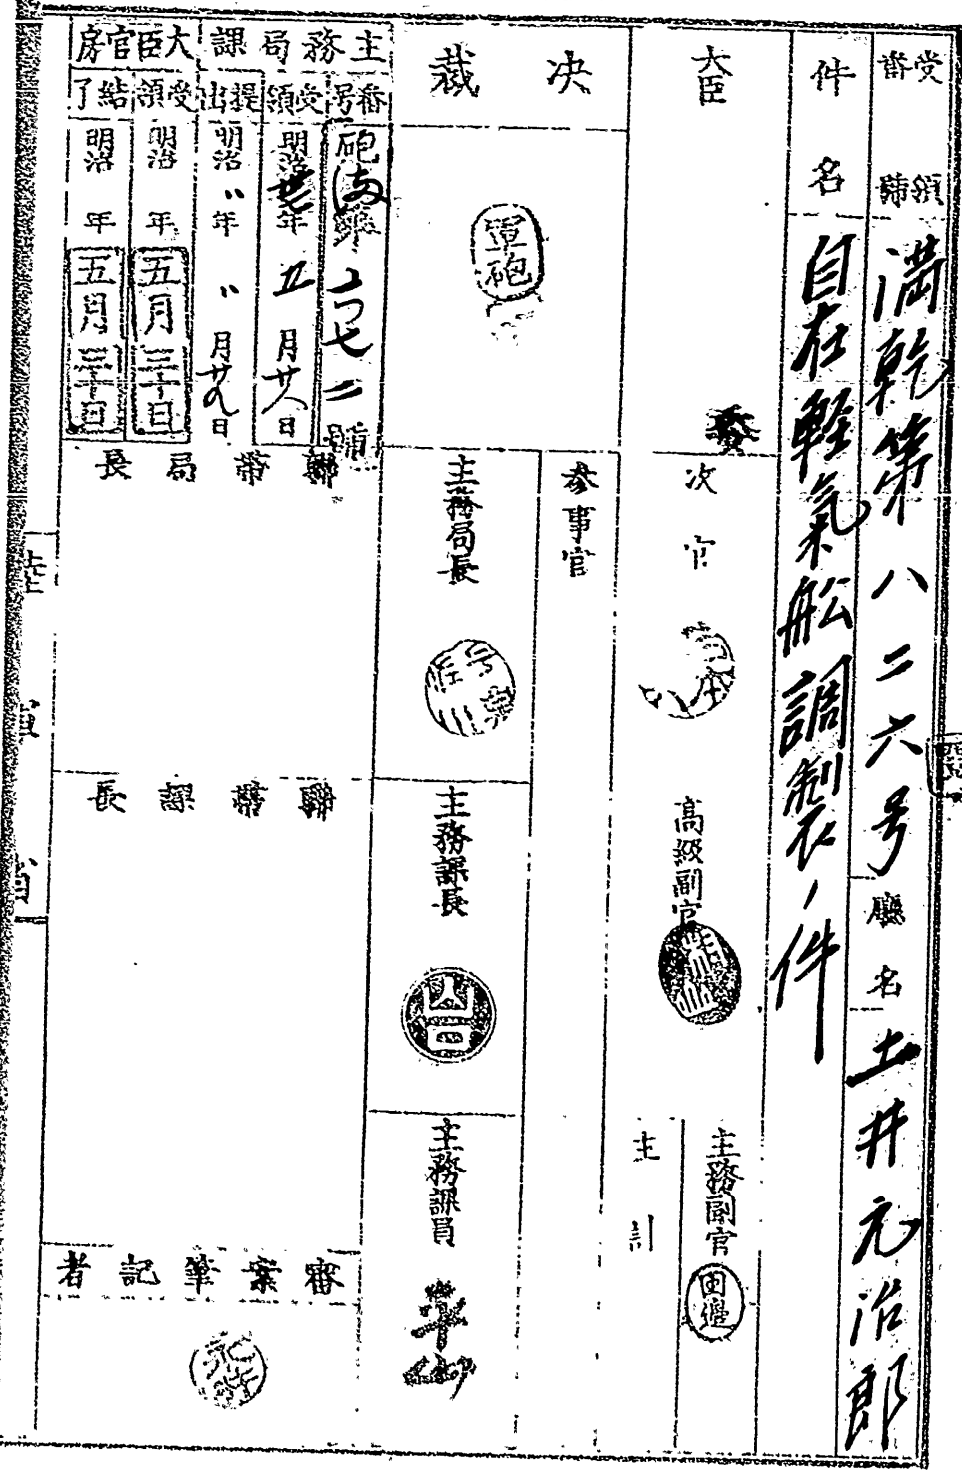 受領番号
満乾第八二六号
廳名
土井元治郎
件名
自在軽氣舩調製ノ件
大臣
委
次官
高級副官
主務副官
主計
決裁
軍砲
参事官
主務局長
主務課長
主務課員
主務局課
番号
砲
第二〇七二號
受領
明治卅七年五月廿八日
提出
明治〃年〃月廿九日
大臣官房
受領
明治 年五月三十日
結了
明治 年五月三十日
聯帯局長
聯帯課長
審案筆記者
陸軍省